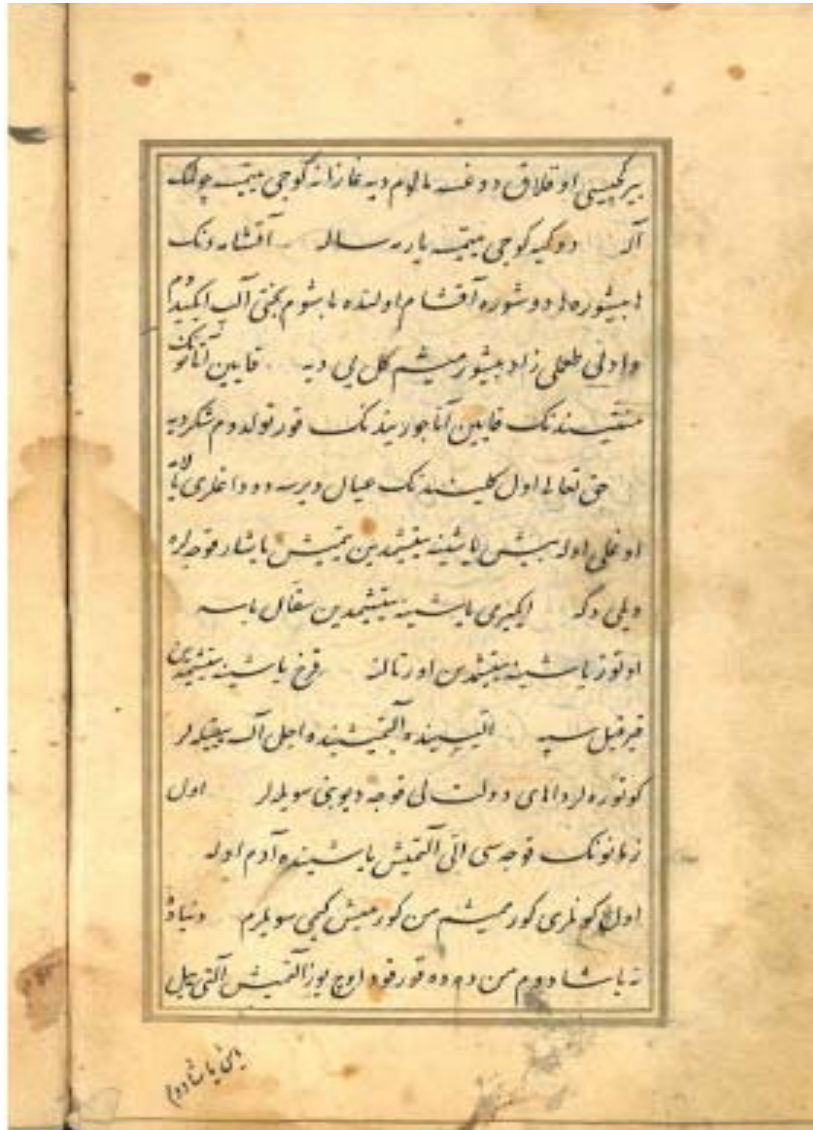 بیر کپسی اوقلاق دوغسه مالام دیه غازانه کوجی ییتمیه چولمک
آله دوکیه کوجی ییتمیه یاره ساله آقشامدنک
بیشوره دوشوره آقشام اولنده باشوم بختی آلپ ایکیدم
دادلی طعملی زاد بیشورمیشم کل یی دیه قایین آتانونک
قایین آنا جوریندنک قورتولدوم شکر دیه
حق تعالی اول کلیندنک عیال ویرسه دوداغلری
اوغلی اوله بیش یاشینه ییتیشمدین یتمیش یاشار قوجه لره
دیلی دکه ایکیرمی یاشینه ییتیشمدین سقال باسه
اوتوز یاشینه ییتیشمدین اورتالنه قرخ یاشینه ییتیشمدین
قیرقیل سپه آلتمیشینده اجل آله ییتیکلر
کوتوره لر داهای دولت لی قوجه دیوبنی سویلرلر اول
زمانونک قوجه سی التی آلتمیش یاشینده آدم اوله
اول کونلری کورمیشم من کورمیش کیمی سویلرم دنیاده
نه یاشادوم من دده قورقود اوچ یوز آلتمیش آلتی ییل
یاشادوم